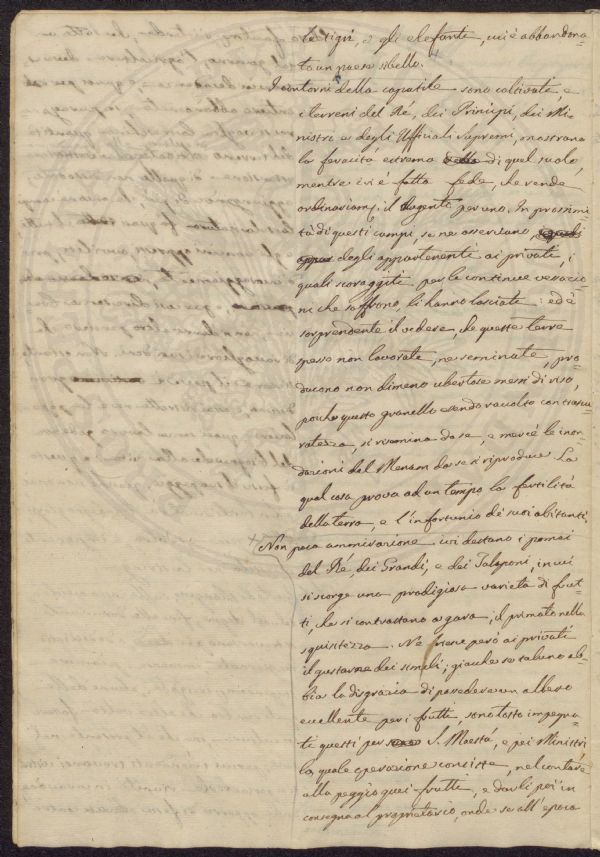 le tigri, o gli elefanti, cui è abbandona=
to un paese sì bello.
I contorni della capitale sono coltivati, e
i terreni del Ré, dei Principi, dei Mi=
nistri e degli Uffiziali supremi, mostrano
la feracità estrema di quel suolo,
mentre ivi è fatta fede, che rende
ordinariam. il dugento per uno. In prossimi
tà di questi campi, se ne osservano,
degli appartenenti ai privati, i
quali scoraggiti per le continue vessazio=
ni che soffrono, li hanno lasciati: ed è
sorprendente il vedere, che queste terre
spesso non lavorate, ne seminate, pro=
ducono non dimeno ubertose messi di riso,
poiche questo granello essendo raccolto con trascu=
ratezza, si risemina da se, e mercè le inon=
dazioni del Menam da se si riproduce. La
qual cosa prova ad un tempo la fertilità
della terra, e l'infortunio de' suoi abitanti.
Non poca ammirazione ivi destano i pomai
del Ré, dei Grandi, e dei Talaponi, in cui
si scorge una prodigiosa varietà di frut=
ti, che si contrastano a gara, il primato nella
squisitezza. Né però ai privati
il gustarne dei simili; giacche se taluno ab=
bia la disgrazia di possedere un albero
eccellente per i frutti, sono tosto impegna=
ti questi per S. Maestà, e pei Ministri
la quale operazione consiste, nel contare
alla peggio quei frutti, e darli poi in
consegna al proprietario, onde se all'epoca